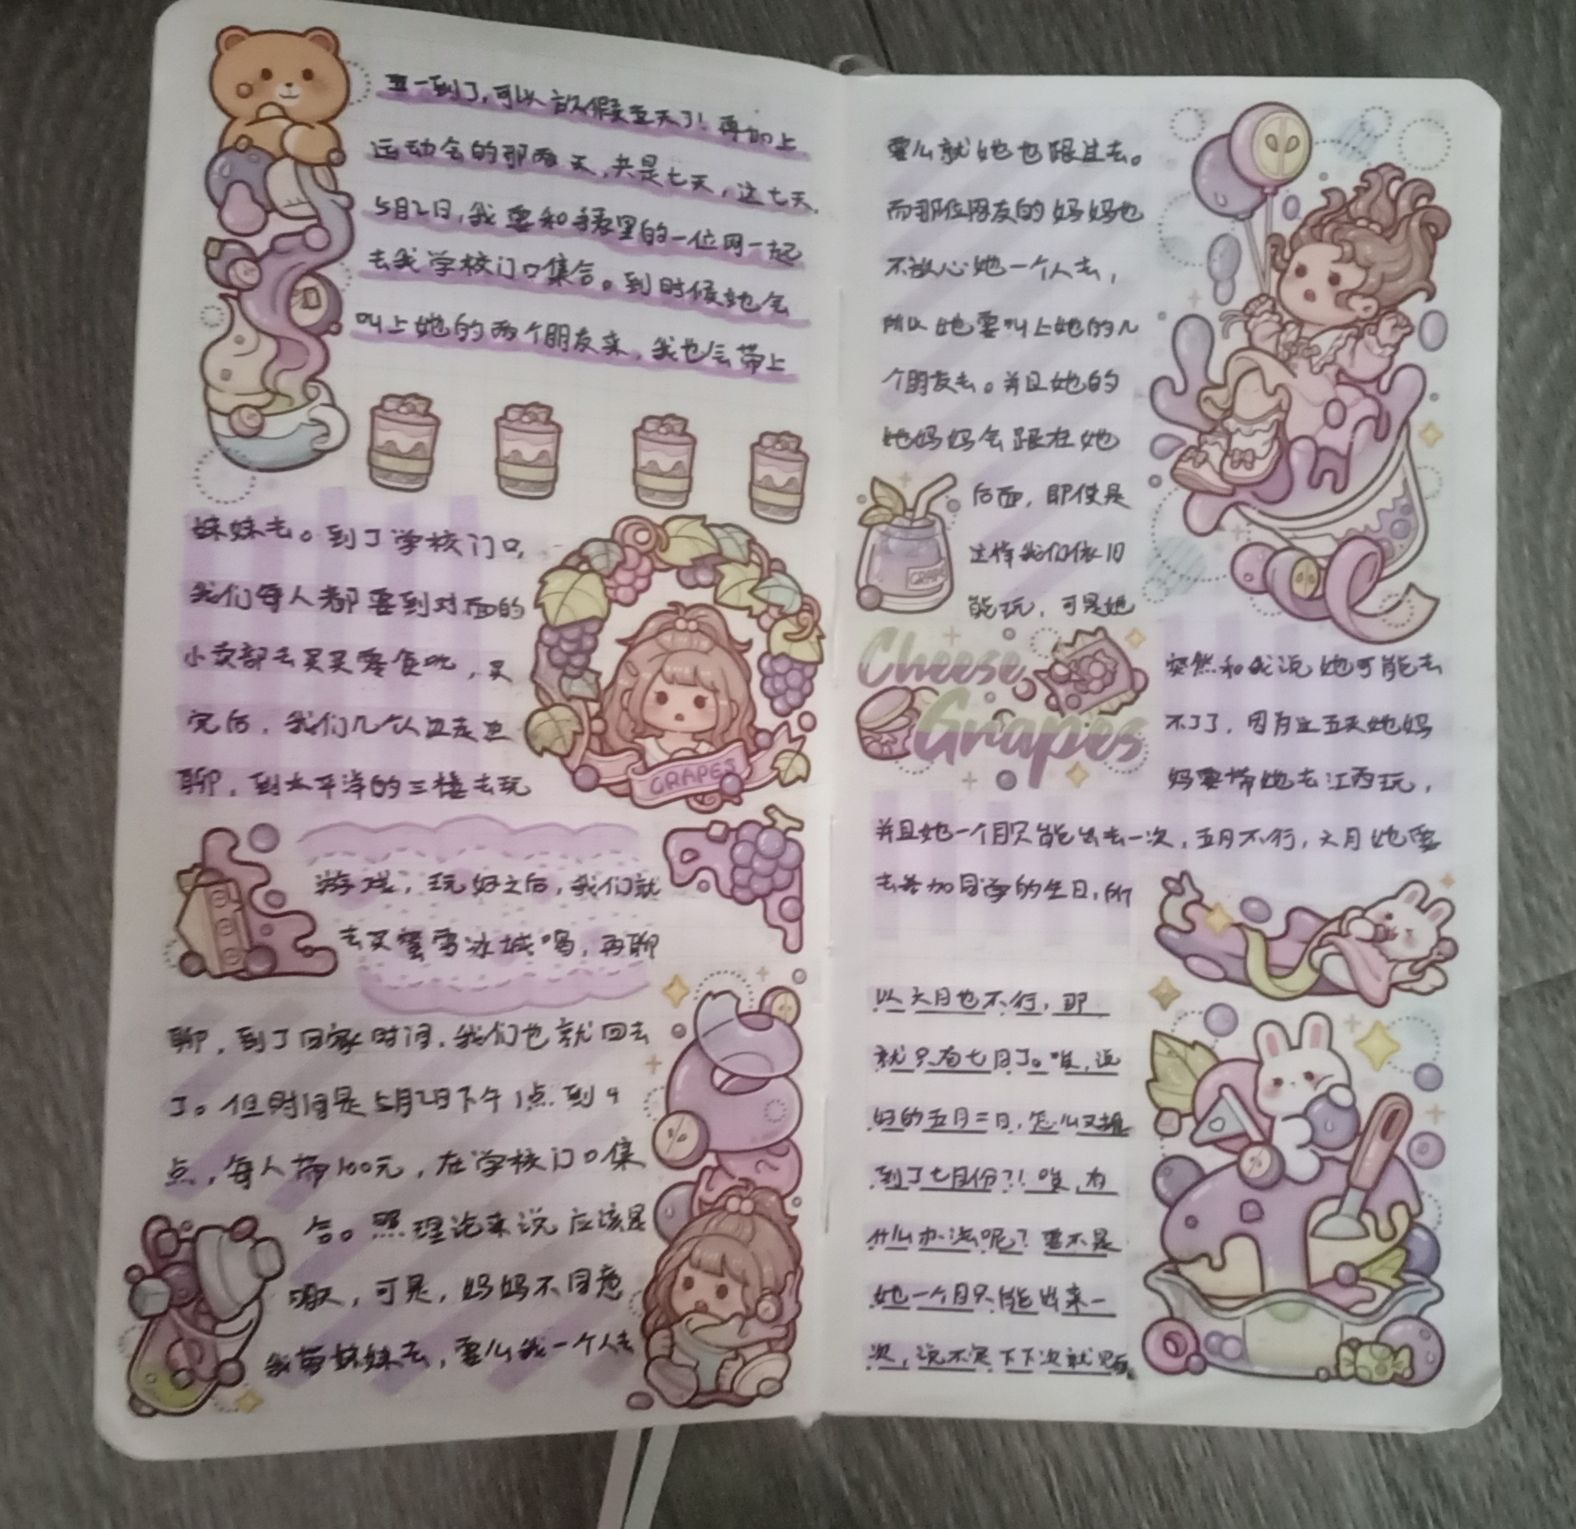 五一到了,可以放假五天了!再加上
运动会的那两天,共是七天,这七天,
5月2日,我要和手表里的一位网一起
去我学校门口集合。到时候她会
叫上她的两个朋友来,我也会带上
妹妹去。到了学校门口,
我们每人都要到对面的
小卖部去买买零食吃,买
完后,我们几个人边走边
聊,到太平洋的三楼去玩
GRAPES
游戏,玩好之后,我们就
去买蜜雪冰城喝,再聊
聊,到了回家时间,我们也就回去
了。但时间是5月2日下午1点到4
点,每人带100元,在学校门口集
合。照理论来说应该是
可是,妈妈不同意
我带妹妹去,要么我一个人去
要么就她也跟过去。
而那位网友的妈妈也
不放心她一个人去,
所以她要叫上她的几
个朋友去。并且她的
她妈妈会跟在她
后面,即使是
这样我们依旧
能玩,可是她
GRAPE
Cheese
Grapes
突然和我说她可能去
不了了,因为这五天她妈
妈要带她去江西玩,
并且她一个月只能出去一次,五月不行,六月她要
去参加同学的生日,所
以六月也不行,那
就只有七月了。唉,说
好的五月二日,怎么又推
到了七月份?!唉,有
什么办法呢?要不是
她一个月只能出来一
次,说不定下下次就见面